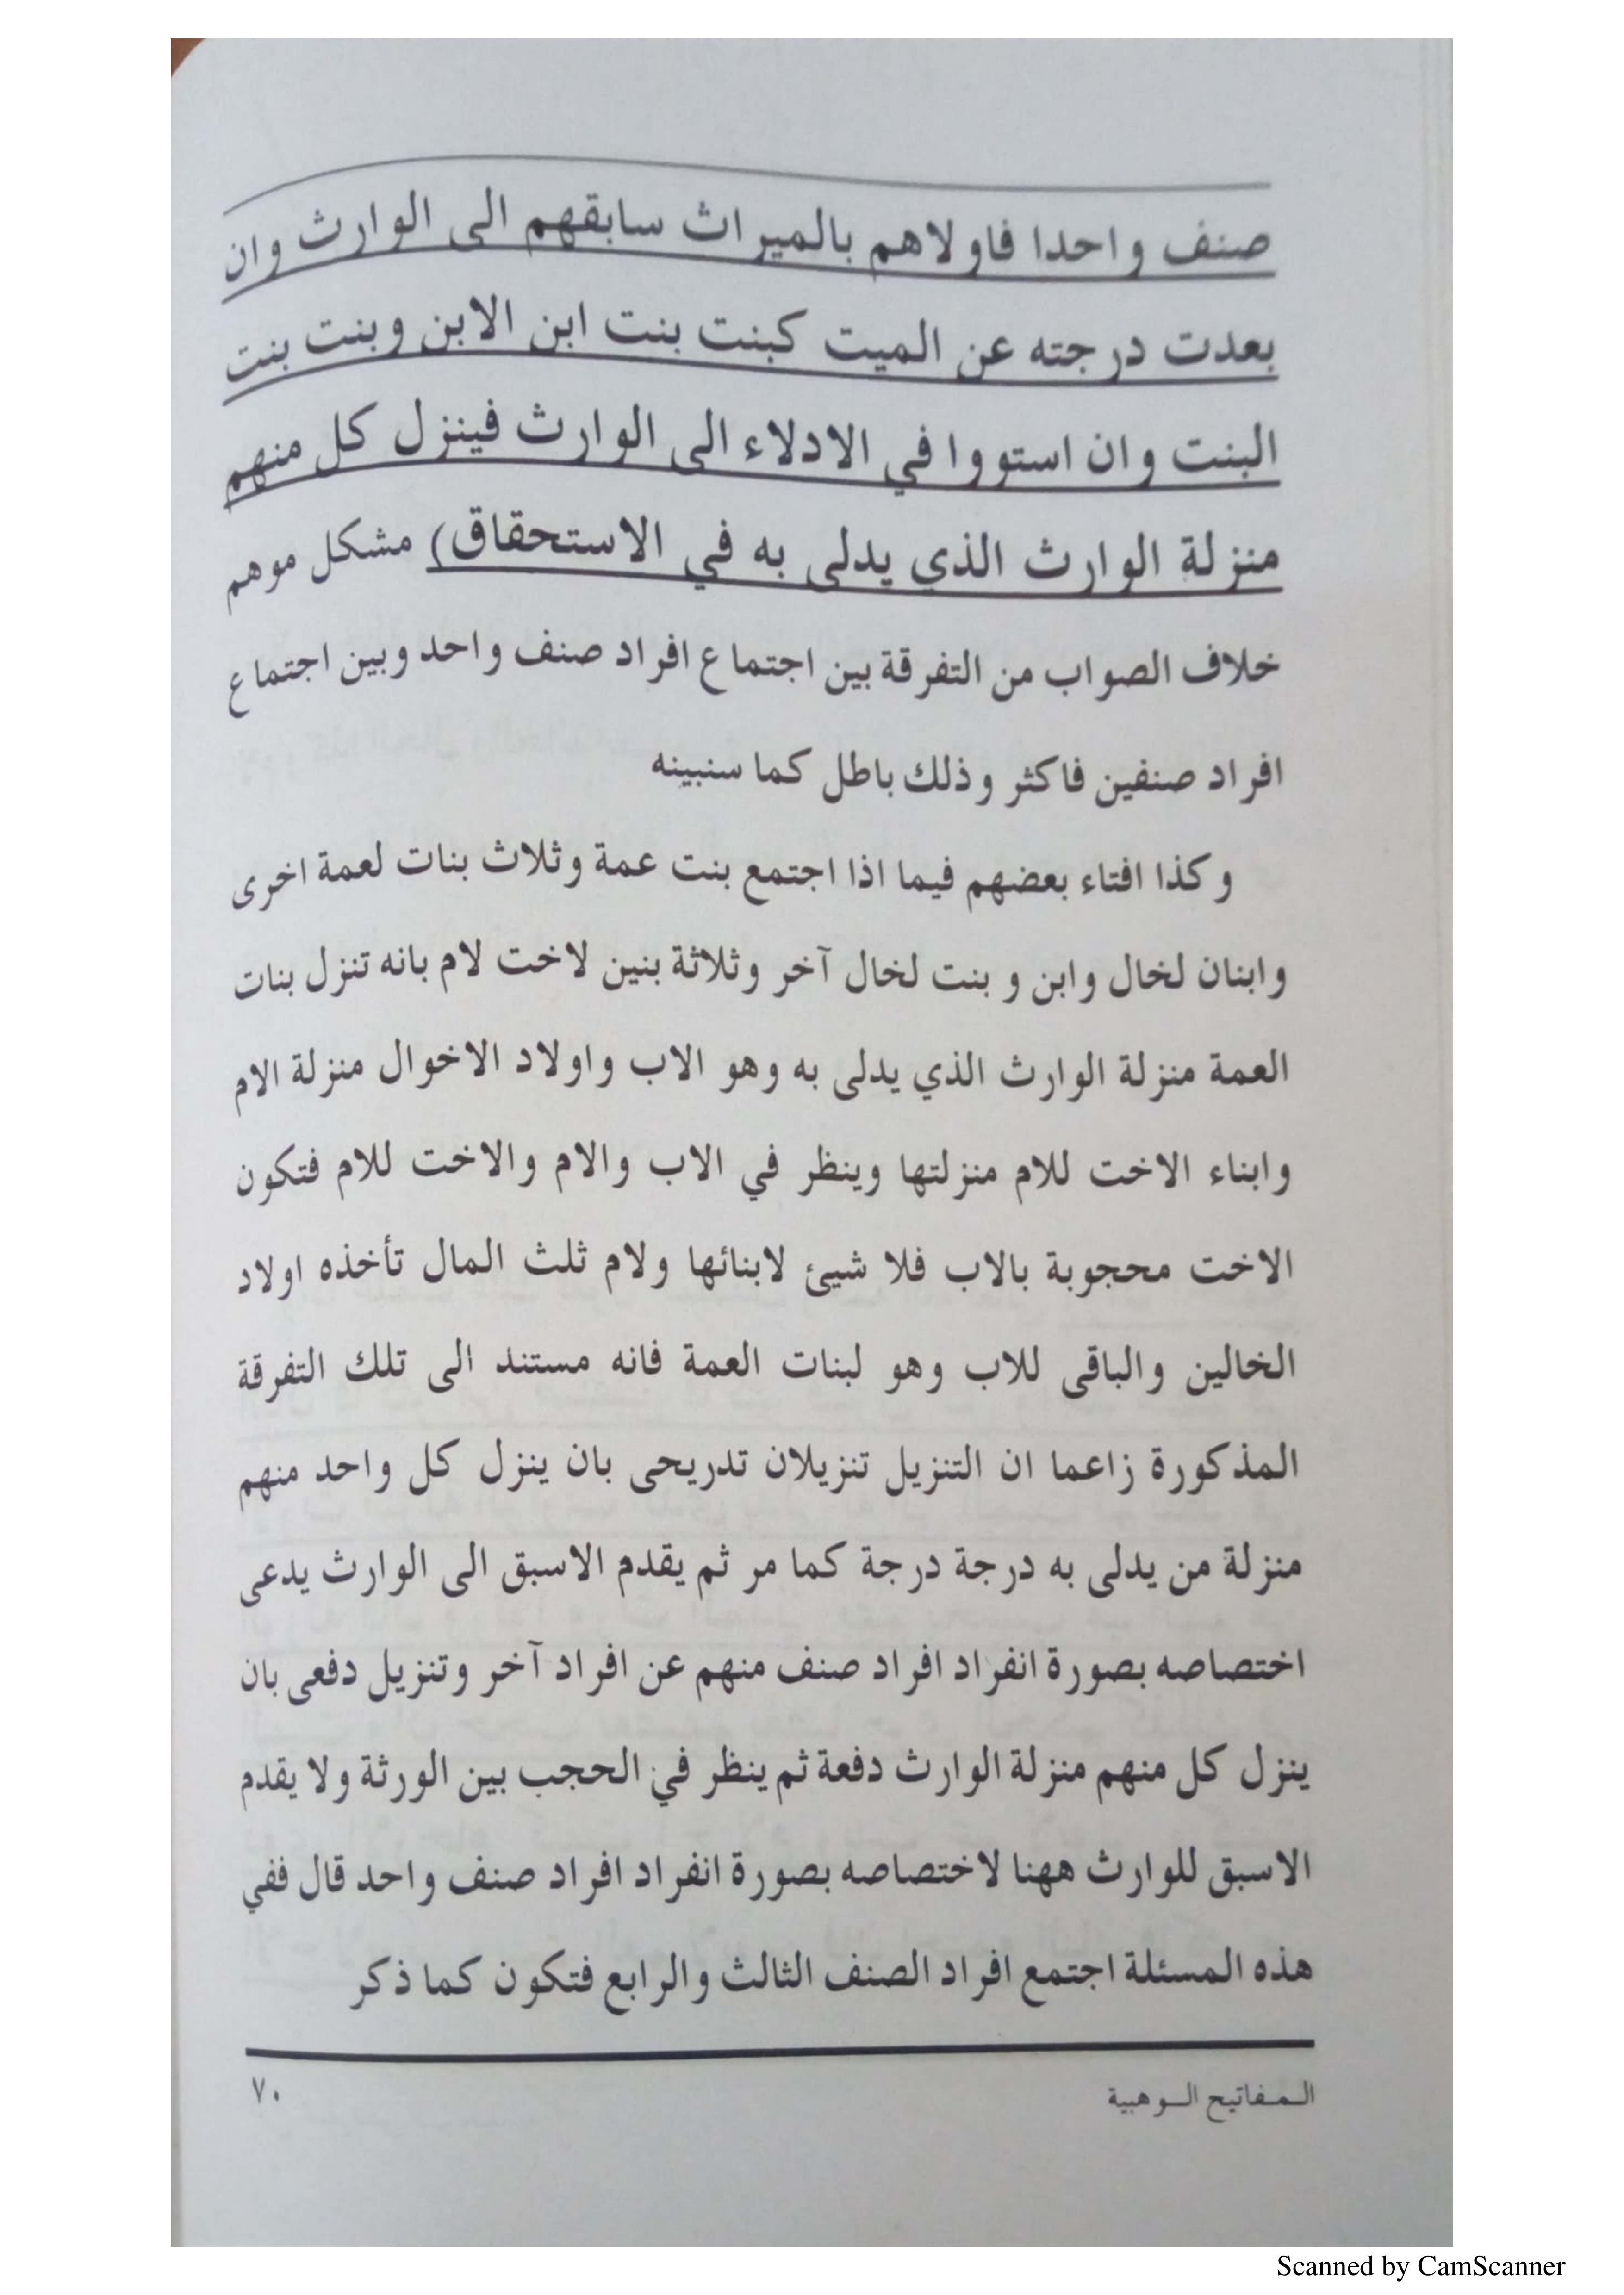 صنف واحدا فاولاهم بالميراث سابقهم الى الوارث وان
بعدت درجته عن الميت كبنت بنت ابن الابن وبنت بنت
البنت وان استووا في الادلاء الى الوارث فينزل كل منهم
منزلة الوارث الذي يدلى به في الاستحقاق) مشكل موهم
خلاف الصواب من التفرقة بين اجتماع افراد صنف واحد وبين اجتماع
افراد صنفين فاكثر وذلك باطل كما سنبينه
وكذا افتاء بعضهم فيما اذا اجتمع بنت عمة وثلاث بنات لعمة اخرى
وابنان لخال وابن و بنت لخال آخر وثلاثة بنين لاخت لام بانه تنزل بنات
العمة منزلة الوارث الذي يدلى به وهو الاب واولاد الاخوال منزلة الام
وابناء الاخت للام منزلتها وينظر في الاب والام والاخت للام فتكون
الاخت محجوبة بالاب فلا شيئ لابنائها ولام ثلث المال تأخذه اولاد
الخالين والباقى للاب وهو لبنات العمة فانه مستند الى تلك التفرقة
المذكورة زاعما ان التنزيل تنزيلان تدريحى بان ينزل كل واحد منهم
منزلة من يدلى به درجة درجة كما مر ثم يقدم الاسبق الى الوارث يدعى
اختصاصه بصورة انفراد افراد صنف منهم عن افراد آخر وتنزيل دفعى بان
ينزل كل منهم منزلة الوارث دفعة ثم ينظر في الحجب بين الورثة ولا يقدم
الاسبق للوارث ههنا لاختصاصه بصورة انفراد افراد صنف واحد قال ففي
هذه المسئلة اجتمع افراد الصنف الثالث والرابع فتكون كما ذكر
المفاتيح الوهبية
٧٠
Scanned by CamScanner